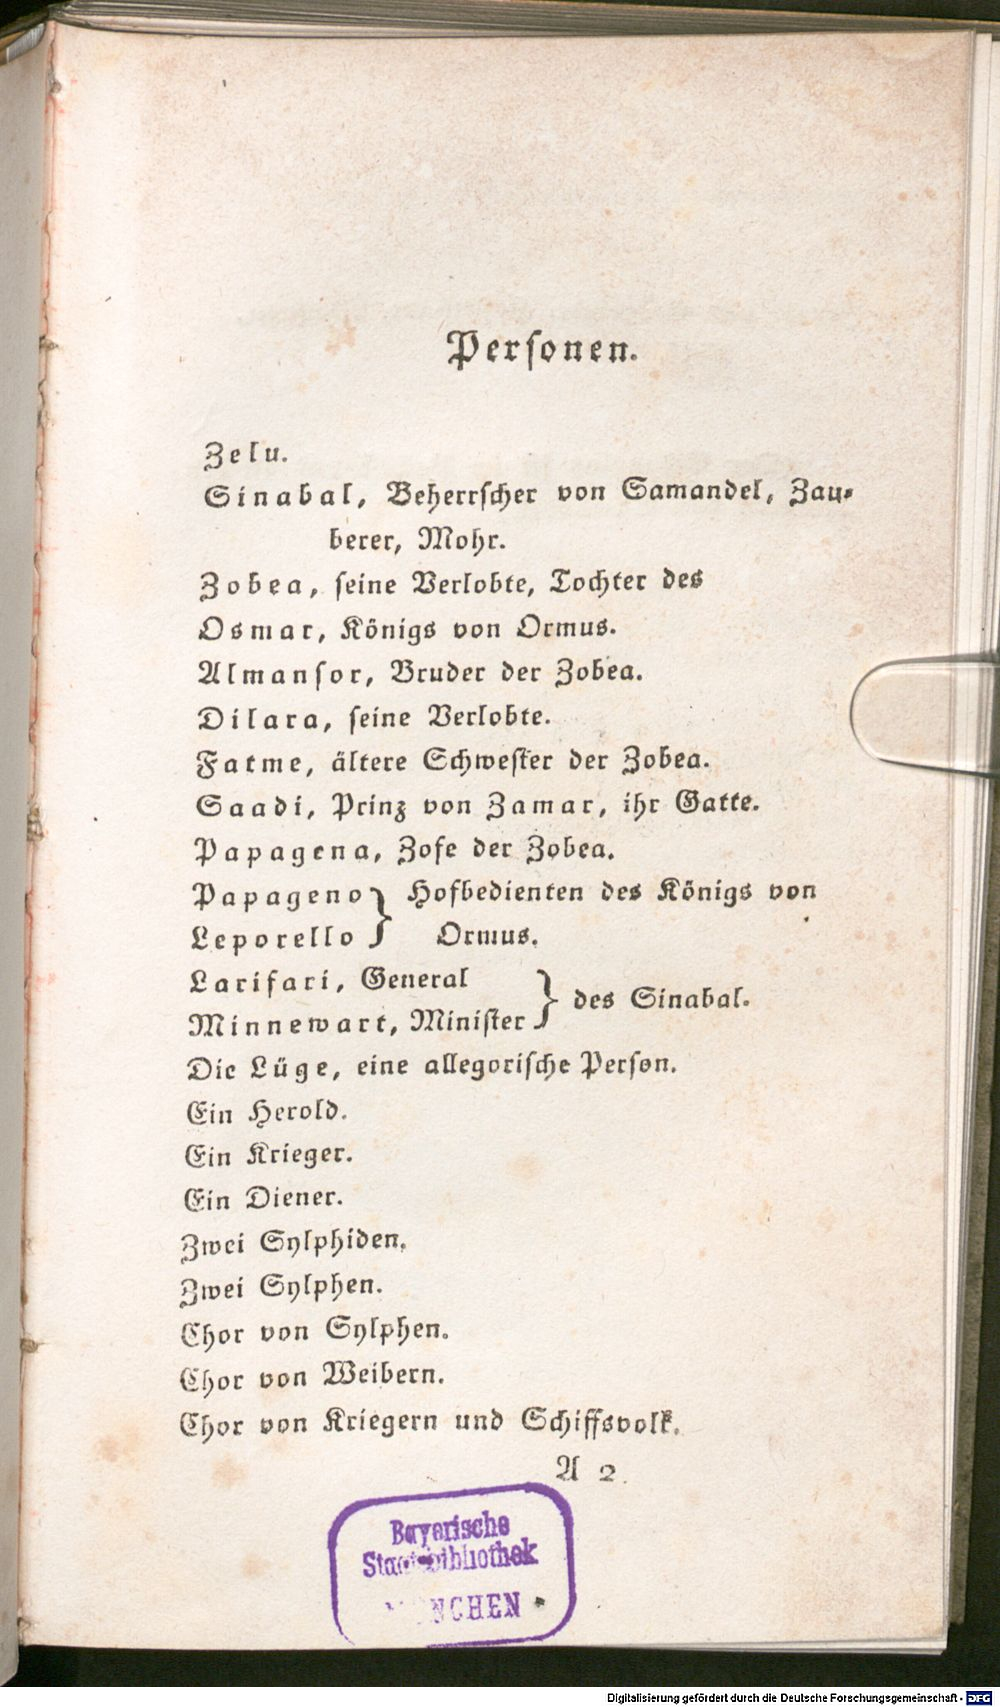 Personen.
Zelu.
Sinabal, Beherrscher von Samandel, Zau⸗
berer, Mohr.
Zobea, seine Verlobte, Tochter des
Osmar, Königs von Ormus.
Almansor, Bruder der Zobea.
Dilara, seine Verlobte.
Fatme, ältere Schwester der Zobea.
Saadi, Prinz von Zamar, ihr Gatte.
Papagena, Zofe der Zobea.
Papageno } Hofbedienten des Königs von
Leporello } Ormus.
Larifari, General
Minnewart, Minister } des Sinabal.
Die Lüge, eine allegorische Person.
Ein Herold.
Ein Krieger.
Ein Diener.
Zwei Sylphiden.
Zwei Sylphen.
Chor von Sylphen.
Chor von Weibern.
Chor von Kriegern und Schiffsvolk.
A 2
Bayerische
Staatsbibliothek
MÜNCHEN
Digitalisierung gefördert durch die Deutsche Forschungsgemeinschaft - DFG